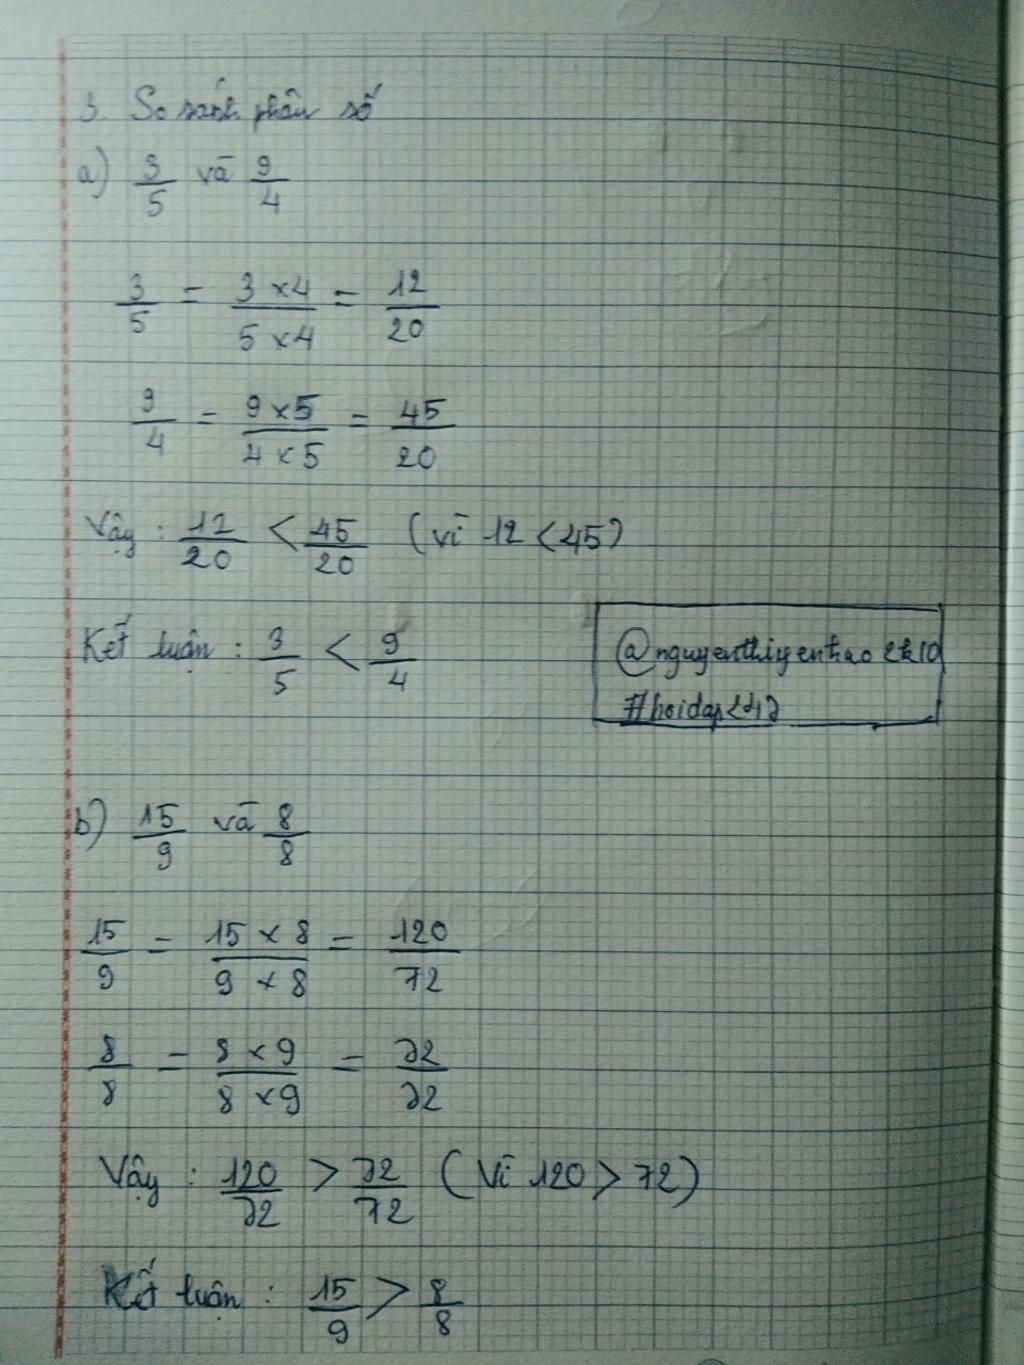 3. So sánh phân số
a) 3/5 và 9/4
3/5 = 3 × 4 / 5 × 4 = 12/20
9/4 = 9 × 5 / 4 × 5 = 45/20
Vậy : 12/20 < 45/20 (vì 12 < 45)
Kết luận : 3/5 < 9/4
@nguyenthiyenthao
#hoidap247
b) 15/9 và 8/8
15/9 = 15 × 8 / 9 × 8 = 120/72
8/8 = 8 × 9 / 8 × 9 = 72/72
Vậy : 120/72 > 72/72 (Vì 120 > 72)
Kết luận : 15/9 > 8/8